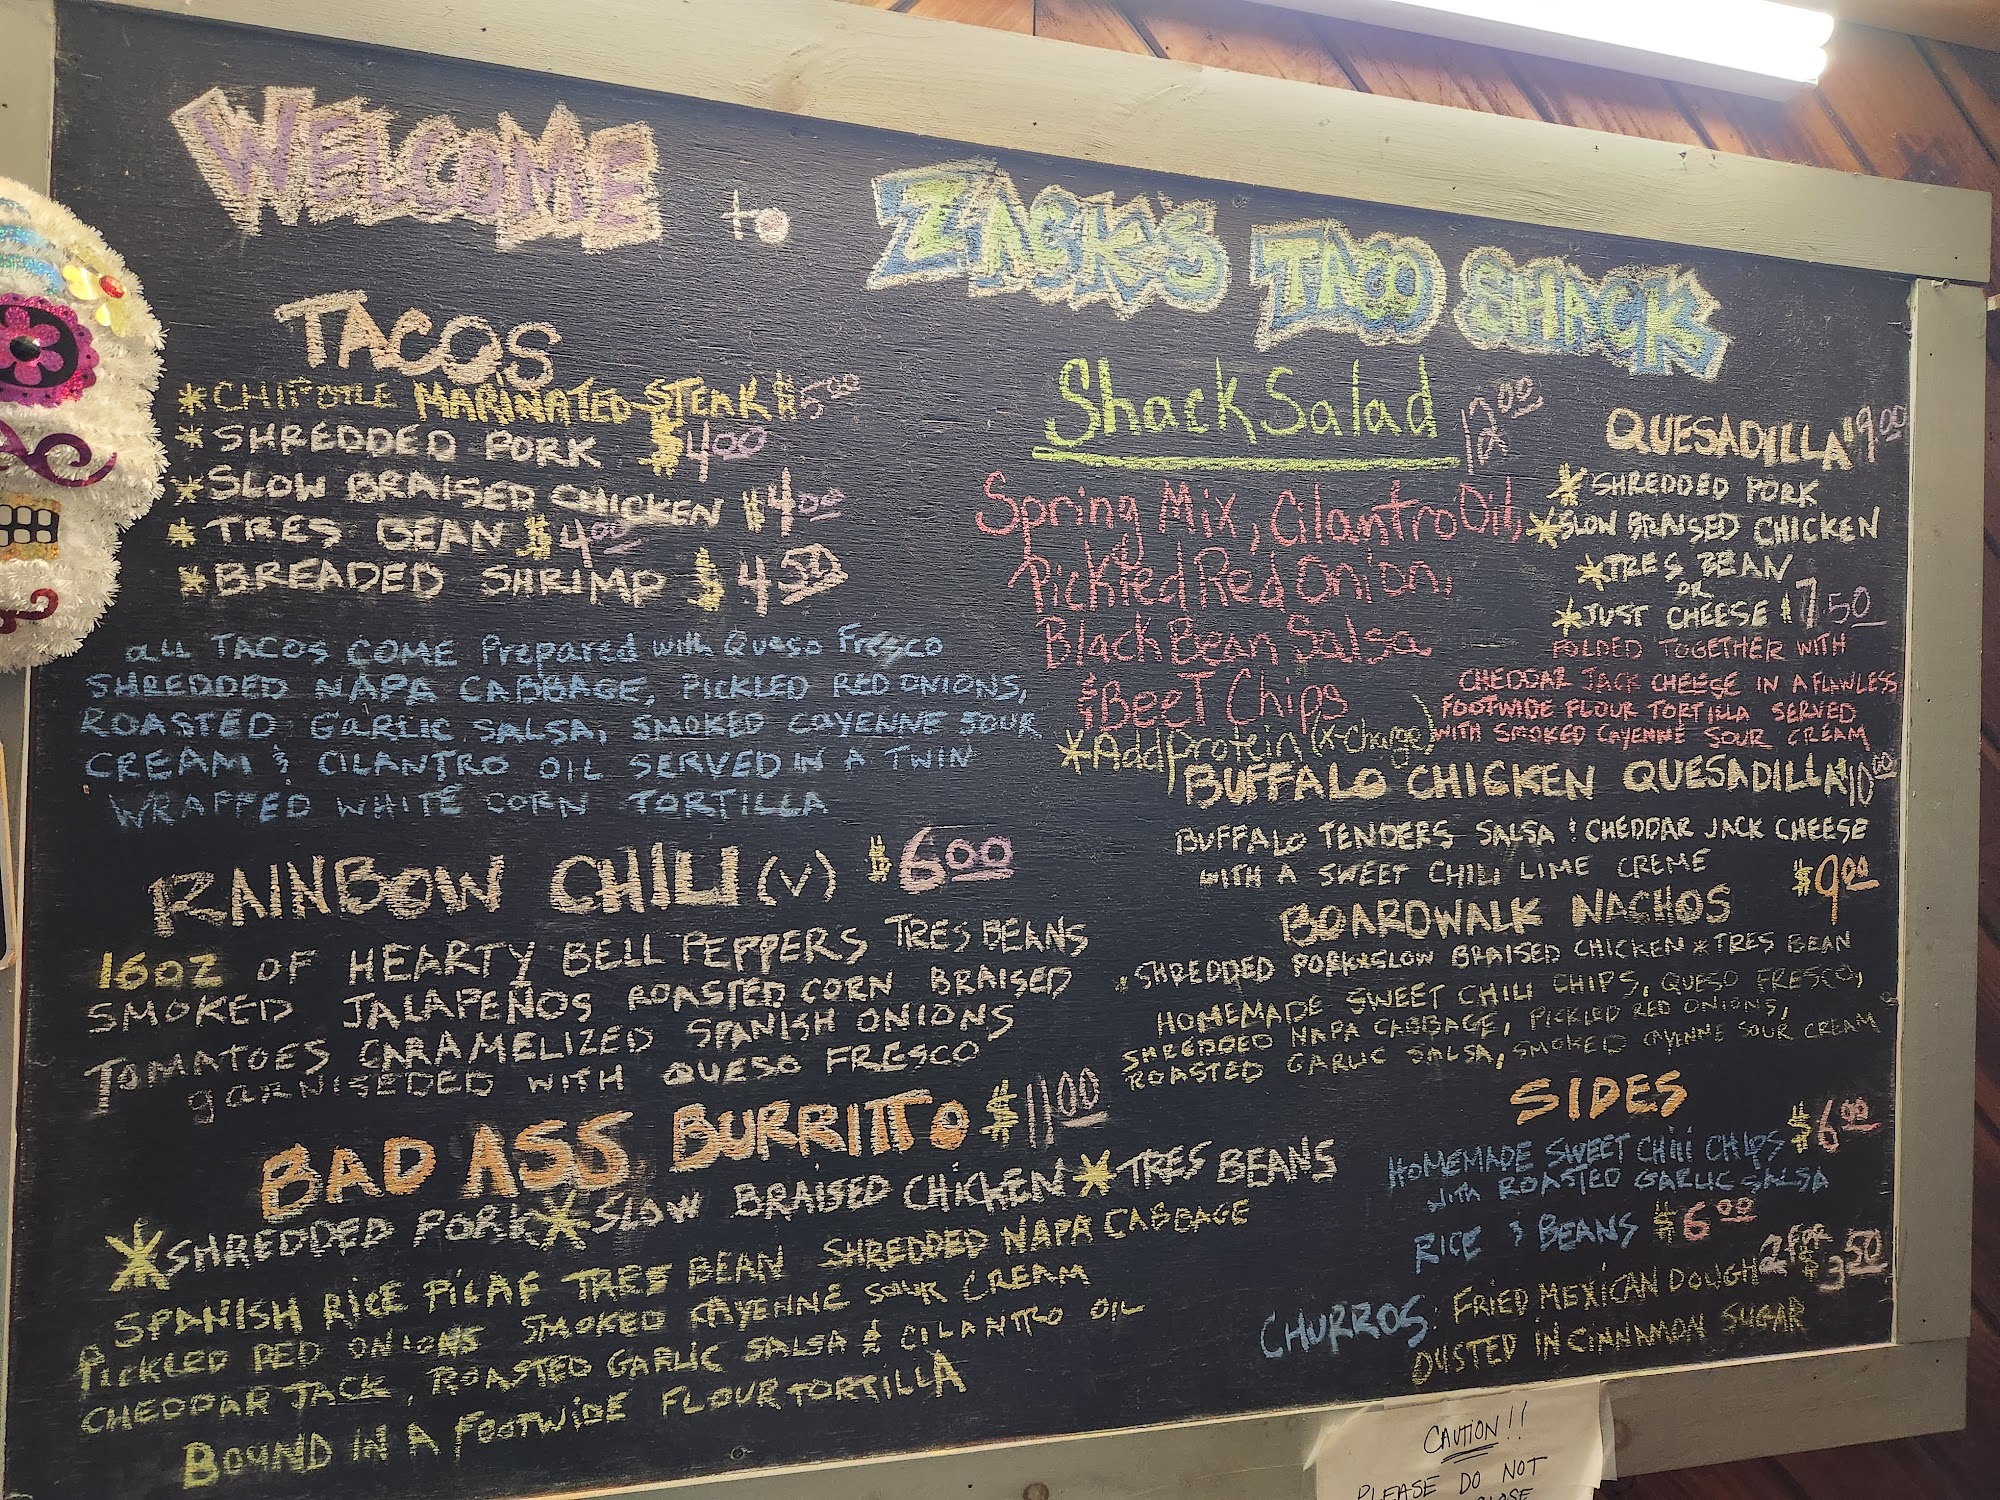 WELCOME to ZACK'S TACO SHACK
TACOS
*CHIPOTLE MARINATED STEAK $5.00
*SHREDDED PORK $4.00
*SLOW BRAISED CHICKEN $4.00
*TRES BEAN $4.00
*BREADED SHRIMP $4.50
all TACOS COME Prepared with Queso Fresco
SHREDDED NAPA CABBAGE, PICKLED RED ONIONS,
ROASTED GARLIC SALSA, SMOKED CAYENNE SOUR
CREAM & CILANTRO OIL SERVED IN A TWIN
WRAPPED WHITE CORN TORTILLA
RAINBOW CHILI (V) $6.00
16oz OF HEARTY BELL PEPPERS TRES BEANS
SMOKED JALAPEÑOS ROASTED CORN BRAISED
TOMATOES CARAMELIZED SPANISH ONIONS
garniseded WITH QUESO FRESCO
BAD ASS BURRITTO $11.00
*SHREDDED PORK*SLOW BRAISED CHICKEN*TRES BEANS
SPANISH RICE PILAF TRES BEAN SHREDDED NAPA CABBAGE
PICKLED RED ONIONS SMOKED CAYENNE SOUR CREAM
CHEDDAR JACK, ROASTED GARLIC SALSA & CILANTRO OIL
BOUND IN A FOOTWIDE FLOUR TORTILLA
Shack Salad 12.00
Spring Mix, Cilantro Oil,
Pickled Red Onion,
Black Bean Salsa
& Beet Chips
*Add Protein (X-Charge)
QUESADILLA $9.00
*SHREDDED PORK
*SLOW BRAISED CHICKEN
*TRES BEAN
OR
*JUST CHEESE $7.50
FOLDED TOGETHER WITH
CHEDDAR JACK CHEESE IN A FLAWLESS
FOOTWIDE FLOUR TORTILLA SERVED
WITH SMOKED CAYENNE SOUR CREAM
BUFFALO CHICKEN QUESADILLA $10.00
BUFFALO TENDERS SALSA & CHEDDAR JACK CHEESE
WITH A SWEET CHILI LIME CREME
BOARDWALK NACHOS $9.00
*SHREDDED PORK*SLOW BRAISED CHICKEN*TRES BEAN
HOMEMADE SWEET CHILI CHIPS, QUESO FRESCO,
SHREDDED NAPA CABBAGE, PICKLED RED ONIONS,
ROASTED GARLIC SALSA, SMOKED CAYENNE SOUR CREAM
SIDES
HOMEMADE SWEET CHili CHIPS $6.00
with ROASTED GARLIC SALSA
RICE & BEANS $6.00
CHURROS: FRIED MEXICAN DOUGH 2 FOR $3.50
DUSTED IN CINNAMON SUGAR
CAUTION!!
PLEASE DO NOT